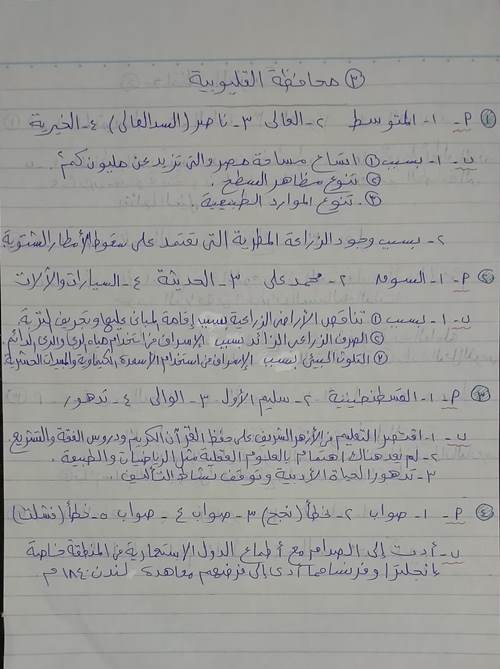 ③ محافظة القليوبية
① P - ١- المتوسط ٢- العالى ٣- ناصر (السد العالى) ٤- الخيرية
ب - ١- بسبب ① اتساع مساحة مصر والتى تزيد عن مليون كم٢.
② تنوع مظاهر السطح.
③ تنوع الموارد الطبيعية
٢- بسبب وجود الزراعة المطرية التى تعتمد على سقوط الأمطار الشتوية
② P - ١- السوق ٢- محمد على ٣- الحديثة ٤- السيارات والآلات
ب - ١- بسبب ① تناقص الأراضى الزراعية بسبب إقامة المبانى عليها وتجريف التربة
② الصرف الزراعى الزائد بسبب الإسراف فى استخدام مياه الرى والرى الدائم.
③ التلوث البيئى بسبب الإسراف فى استخدام الأسمدة الكيماوية والمبيدات الحشرية
③ P - ١- القسطنطينية ٢- سليم الأول ٣- الوالى ٤- تدهور
ب - ١- اقتصر التعليم فى الأزهر الشريف على حفظ القرآن الكريم ودروس الفقة والتشريع.
٢- لم يعد هناك اهتمام بالعلوم العقلية مثل الرياضيات والطبيعة.
٣- تدهور الحياة الأدبية وتوقف نشاط التأليف.
④ P - ١- صواب ٢- خطأ (نجح) ٣- صواب ٤- صواب ٥- خطأ (فشلت)
ب - أدت إلى الصدام مع أطماع الدول الاستعمارية فى المنطقة خاصة
إنجلترا وفرنسا مما أدى إلى فرضهم معاهدة لندن ١٨٤٠م